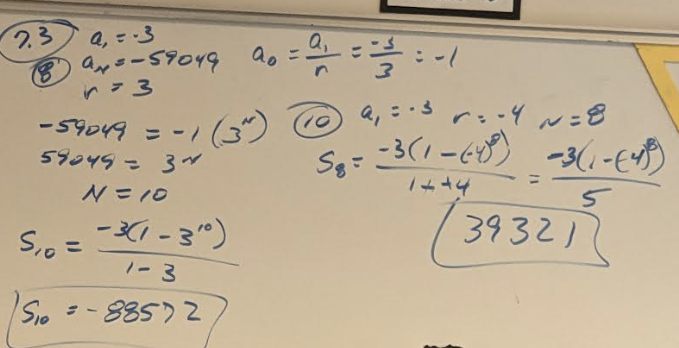 7.3 a₁ = -3
⑧ aₙ = -59049 a₀ = a₁/r = -3/3 = -1
r = 3
-59049 = -1(3ᴺ)
59049 = 3ᴺ
N = 10
S₁₀ = -3(1 - 3¹⁰)/(1 - 3)
S₁₀ = -88572
⑩ a₁ = -3 r = -4 N = 8
S₈ = -3(1 - (-4)⁸)/(1 + +4) = -3(1 - (-4)⁸)/5
39321